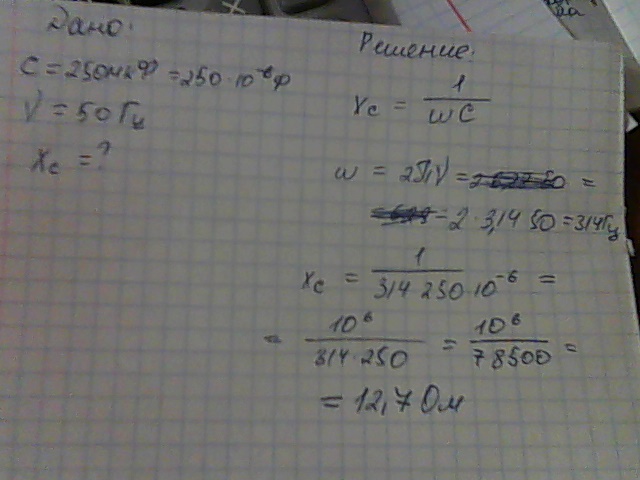 Дано:
C = 250мкФ = 250 · 10⁻⁶ Ф
ν = 50 Гц
Xc = ?
Решение:
Xc = 1/ωC
ω = 2πν = =
= 2 · 3,14 50 = 314Гц
Xc = 1/314 250 · 10⁻⁶ =
= 10⁶/314 · 250 = 10⁶/78500 =
= 12,7 Ом